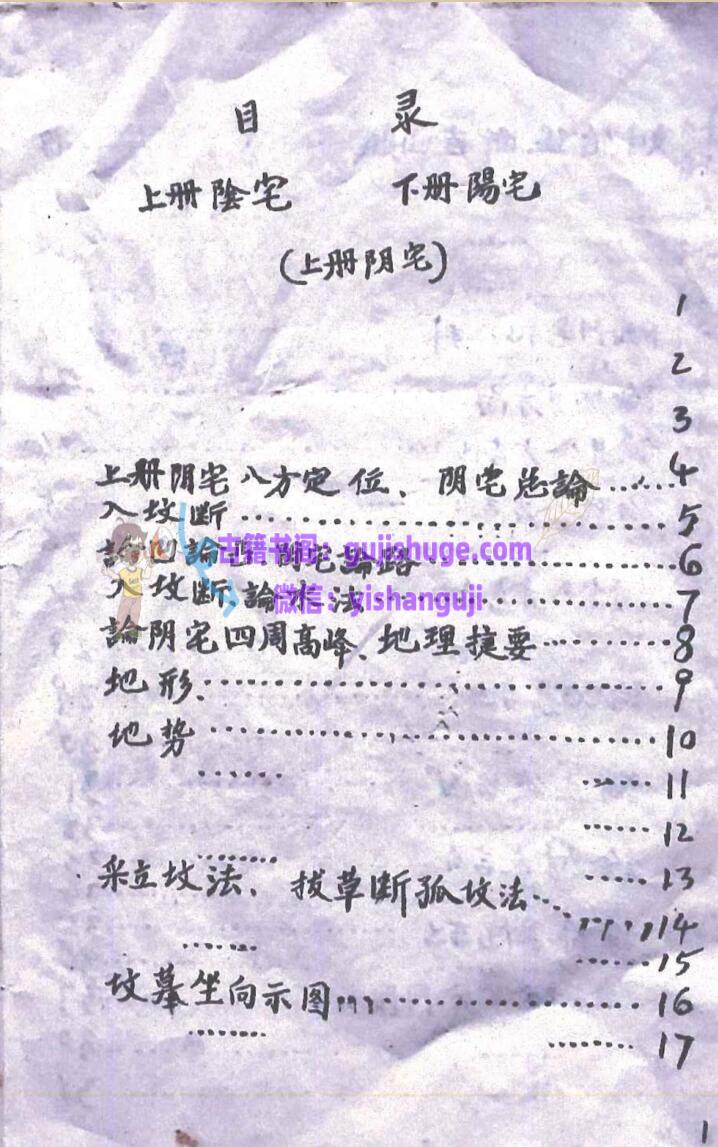 目 录
上册陰宅 下册陽宅
(上册阴宅)
1
2
3
上册阴宅八方定位、阴宅总論……4
入坟断……5
論凹論 阴宅論路……6
入坟断論 法……7
論阴宅四周高峰、地理捷要……8
地形……9
地势……10
…… ……11
……12
……
……13
采立坟法、拔草断孤坟法……14
…… ……15
坟墓坐向示图……16
…… ……17
1
古籍书阁：gujishuge.com
微信：yishanguji